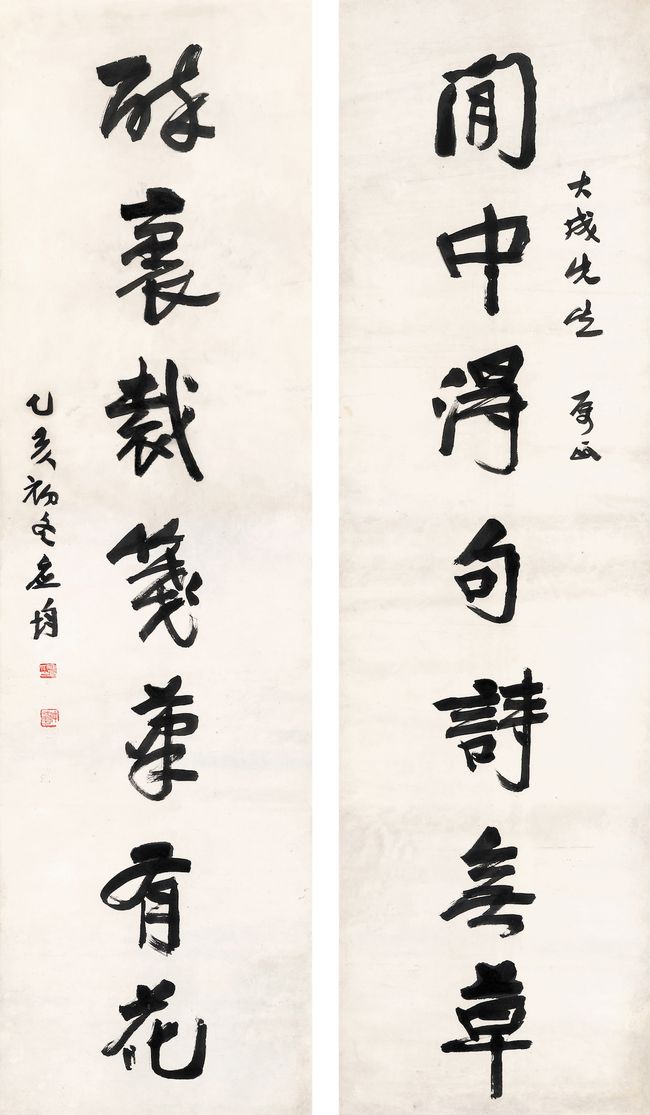 大成先生 屬正
閒中得句詩無草
醉裏裁箋筆有花
乙亥初冬